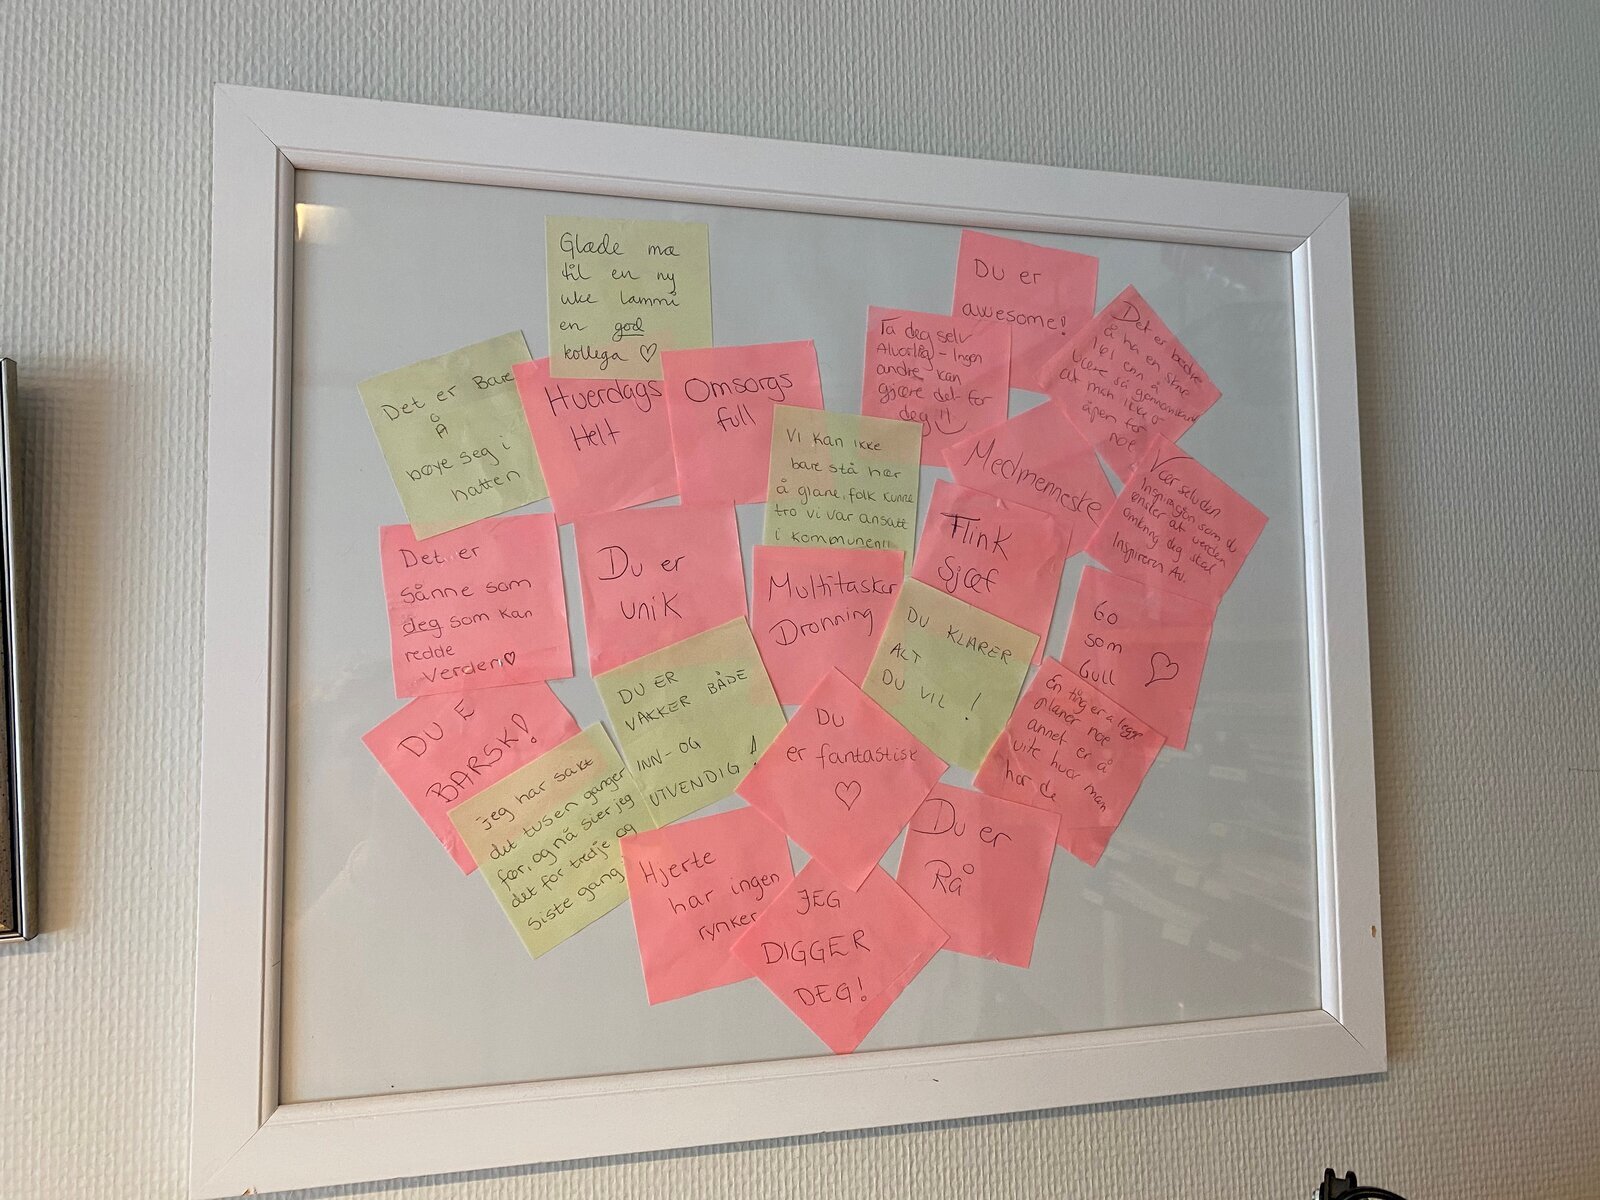 Glæde mæ
til en ny
uke lammi
en god
kollega ♡
Du er
awesome!
Det er Bare
Å
bøye seg i
hatten
Hverdags
Helt
Omsorgs
full
Ta deg selv
Alvorlig - Ingen
andre kan
gjøre det for
deg !!
Det er bedre
å ha en skrue
løs enn å
være så
at man ikke er
åpen for
noe
Vi kan ikke
bare stå hær
å glane, folk kunne
tro vi var ansatt
i kommunen!!
Medmenneske
Vær selv den
Inspirasjon som du
ønsker at verden
omkring deg skal
Inspireres Av.
Det er
sånne som
deg som kan
redde
Verden ♡
Du er
unik
Multitasker
Dronning
Flink
Sjæf
DU KLARER
ALT
DU VIL !
Go
som
Gull ♡
DU E
BARSK!
DU ER
VAKKER BÅDE
INN- OG
UTVENDIG !
Du
er fantastisk
♡
En ting er å legge
planer noe
annet er å
vite hvor man
har de
jeg har sakt
det tusen ganger
før, og nå sier jeg
det for tredje og
siste gang
Hjerte
har ingen
rynker
JEG
DIGGER
DEG!
Du er
Rå